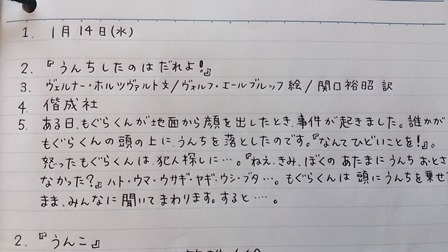 1. 1月14日(水)
2. 『うんちしたのはだれよ!』
3. ヴェルナー・ホルツヴァルト文/ヴォルフ・エールブルッフ 絵/関口裕昭 訳
4. 偕成社
5. ある日、もぐらくんが地面から顔を出したとき、事件が起きました。誰かが
もぐらくんの頭の上にうんちを落としたのです。『なんてひどいことを!』。
怒ったもぐらくんは犯人探しに…。『ねえ、きみ、ぼくのあたまにうんちおとさ
なかった?』ハト・ウマ・ウサギ・ヤギ・ウシ・ブタ…。もぐらくんは頭にうんちを乗せ
まま、みんなに聞いてまわります。すると…。
2. 『うんこ』